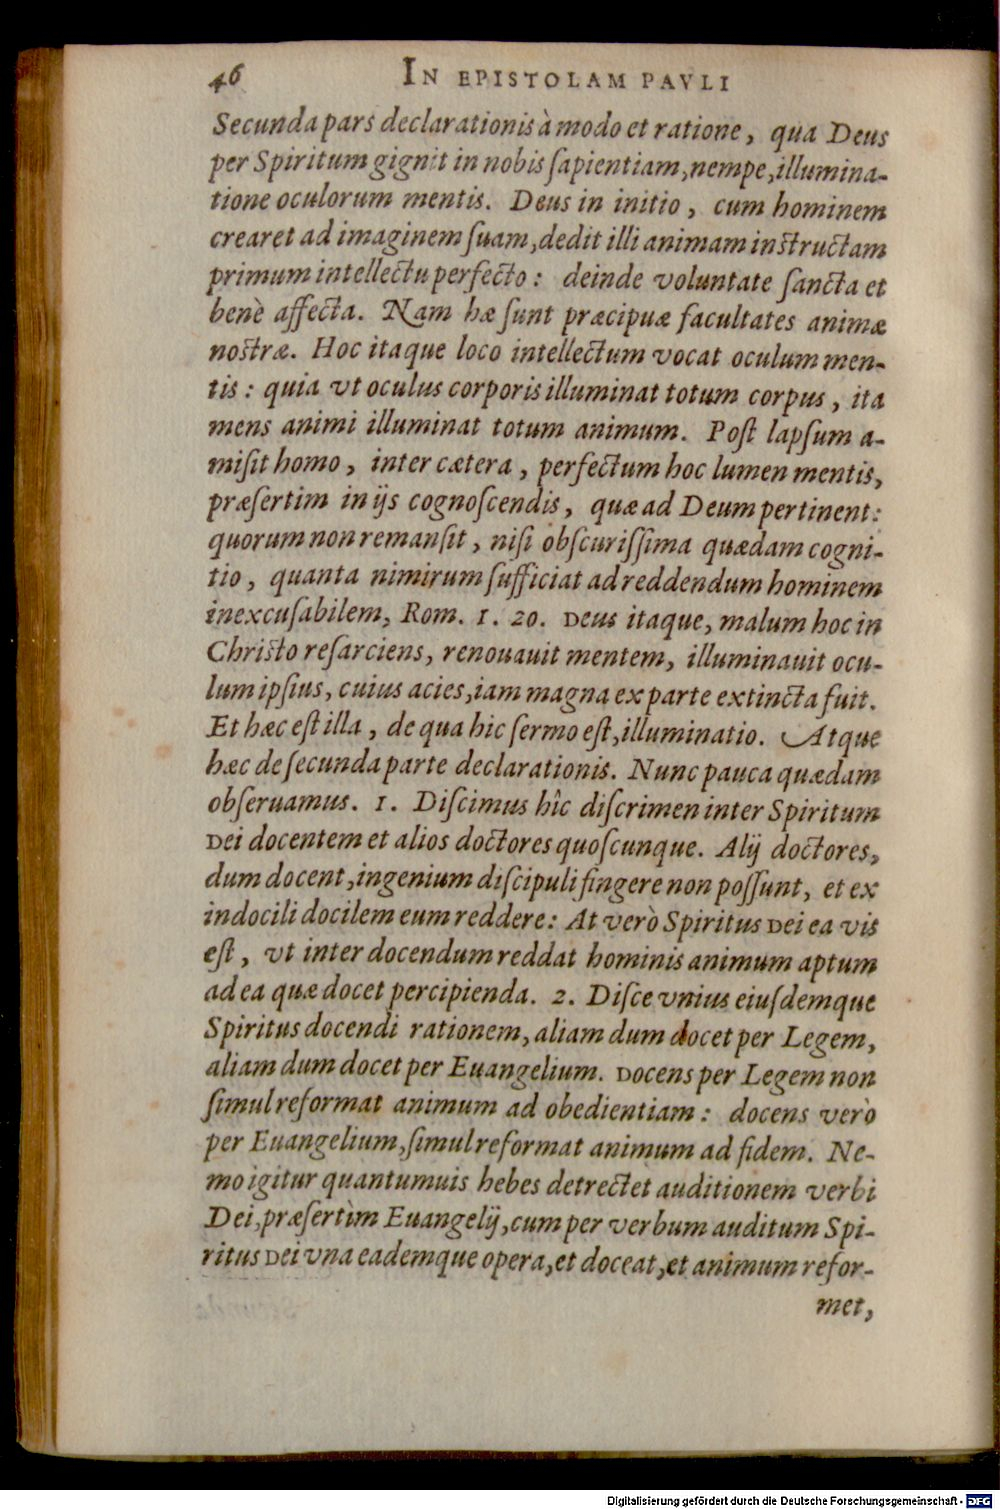 46 IN EPISTOLAM PAVLI
Secunda pars declarationis à modo et ratione, qua Deus
per Spiritum gignit in nobis ſapientiam, nempe, illumina-
tione oculorum mentis. Deus in initio, cum hominem
crearet ad imaginem ſuam, dedit illi animam inſtructam
primum intellectu perfecto: deinde voluntate ſancta et
benè affecta. Nam hæ ſunt præcipuæ facultates animæ
noſtræ. Hoc itaque loco intellectum vocat oculum men-
tis: quia vt oculus corporis illuminat totum corpus, ita
mens animi illuminat totum animum. Poſt lapſum a-
miſit homo, inter cætera, perfectum hoc lumen mentis,
præſertim in ijs cognoſcendis, quæ ad Deum pertinent:
quorum non remanſit, niſi obſcuriſſima quædam cogni-
tio, quanta nimirum ſufficiat ad reddendum hominem
inexcuſabilem, Rom. 1. 20. Deus itaque, malum hoc in
Chriſto reſarciens, renouauit mentem, illuminauit ocu-
lum ipſius, cuius acies, iam magna ex parte extincta fuit.
Et hæc eſt illa, de qua hic ſermo eſt, illuminatio. Atque
hæc de ſecunda parte declarationis. Nunc pauca quædam
obſeruamus. 1. Diſcimus hîc diſcrimen inter Spiritum
Dei docentem et alios doctores quoſcunque. Alij doctores,
dum docent, ingenium diſcipuli fingere non poſſunt, et ex
indocili docilem eum reddere: At verò Spiritus Dei ea vis
eſt, vt inter docendum reddat hominis animum aptum
ad ea quæ docet percipienda. 2. Diſce vnius eiuſdemque
Spiritus docendi rationem, aliam dum docet per Legem,
aliam dum docet per Euangelium. Docens per Legem non
ſimul reformat animum ad obedientiam: docens verò
per Euangelium, ſimul reformat animum ad fidem. Ne-
mo igitur quantumuis hebes detrectet auditionem verbi
Dei, præſertìm Euangelij, cum per verbum auditum Spi-
ritus Dei vna eademque opera, et doceat, et animum refor-
met,
Digitalisierung gefördert durch die Deutsche Forschungsgemeinschaft - DFG